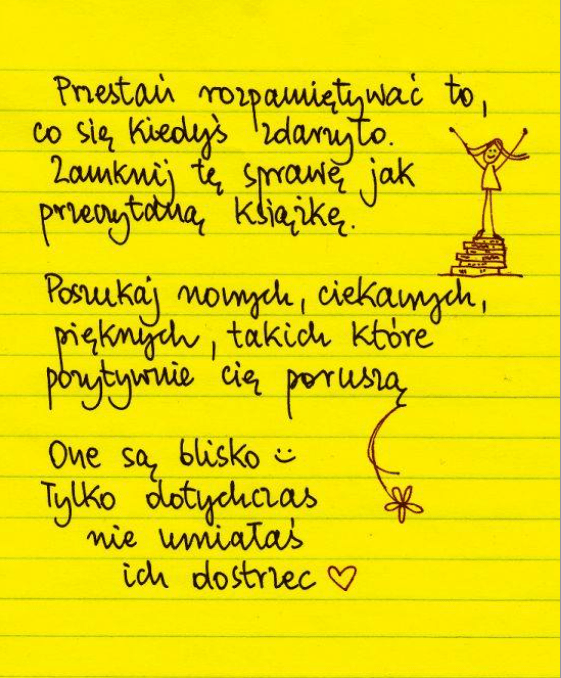 Przestań rozpamiętywać to,
co się kiedyś zdarzyło.
Zamknij tę sprawę jak
przeczytaną książkę.
Poszukaj nowych, ciekawych,
pięknych, takich które
pozytywnie cię poruszą
One są blisko
Tylko dotychczas
nie umiałaś
ich dostrzec ♡